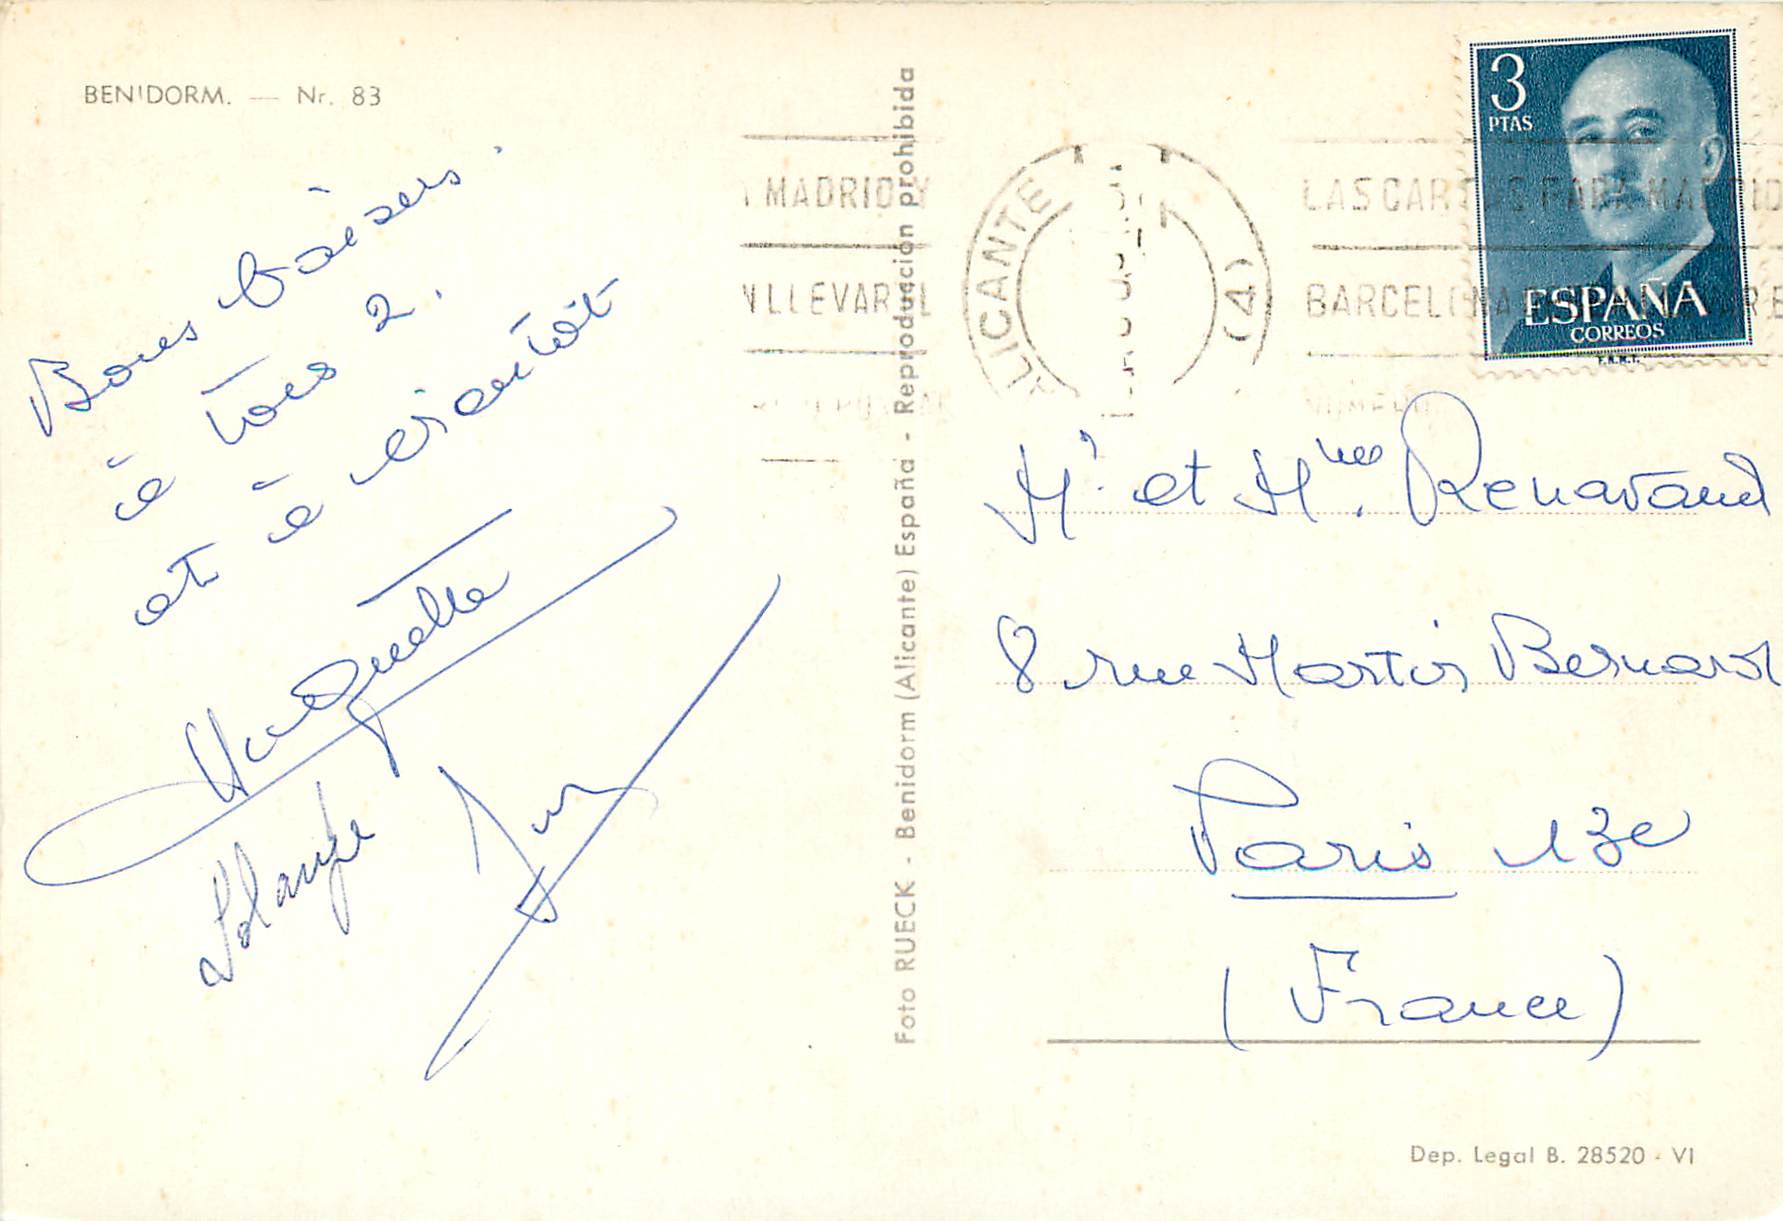 BENIDORM. — Nr. 83
Bons baisers.
à tous 2.
et à bientôt
Huguette
Solange
Foto RUECK - Benidorm (Alicante) España - Reproducción prohibida
MADRID Y
LLEVAR
ALICANTE
(4)
LAS CARTAS PARA MADRID
BARCELONA
3
PTAS
ESPAÑA
CORREOS
F.N.M.T.
Mr et Mme Renavand
8 rue Martin Bernard
Paris 13e
(France)
Dep. Legal B. 28520 - VI